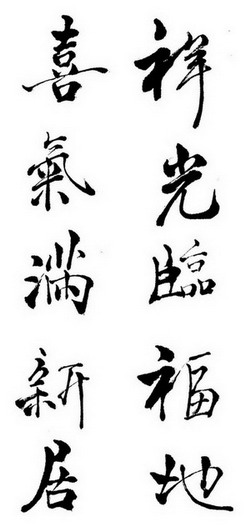 祥光臨福地
喜氣滿新居